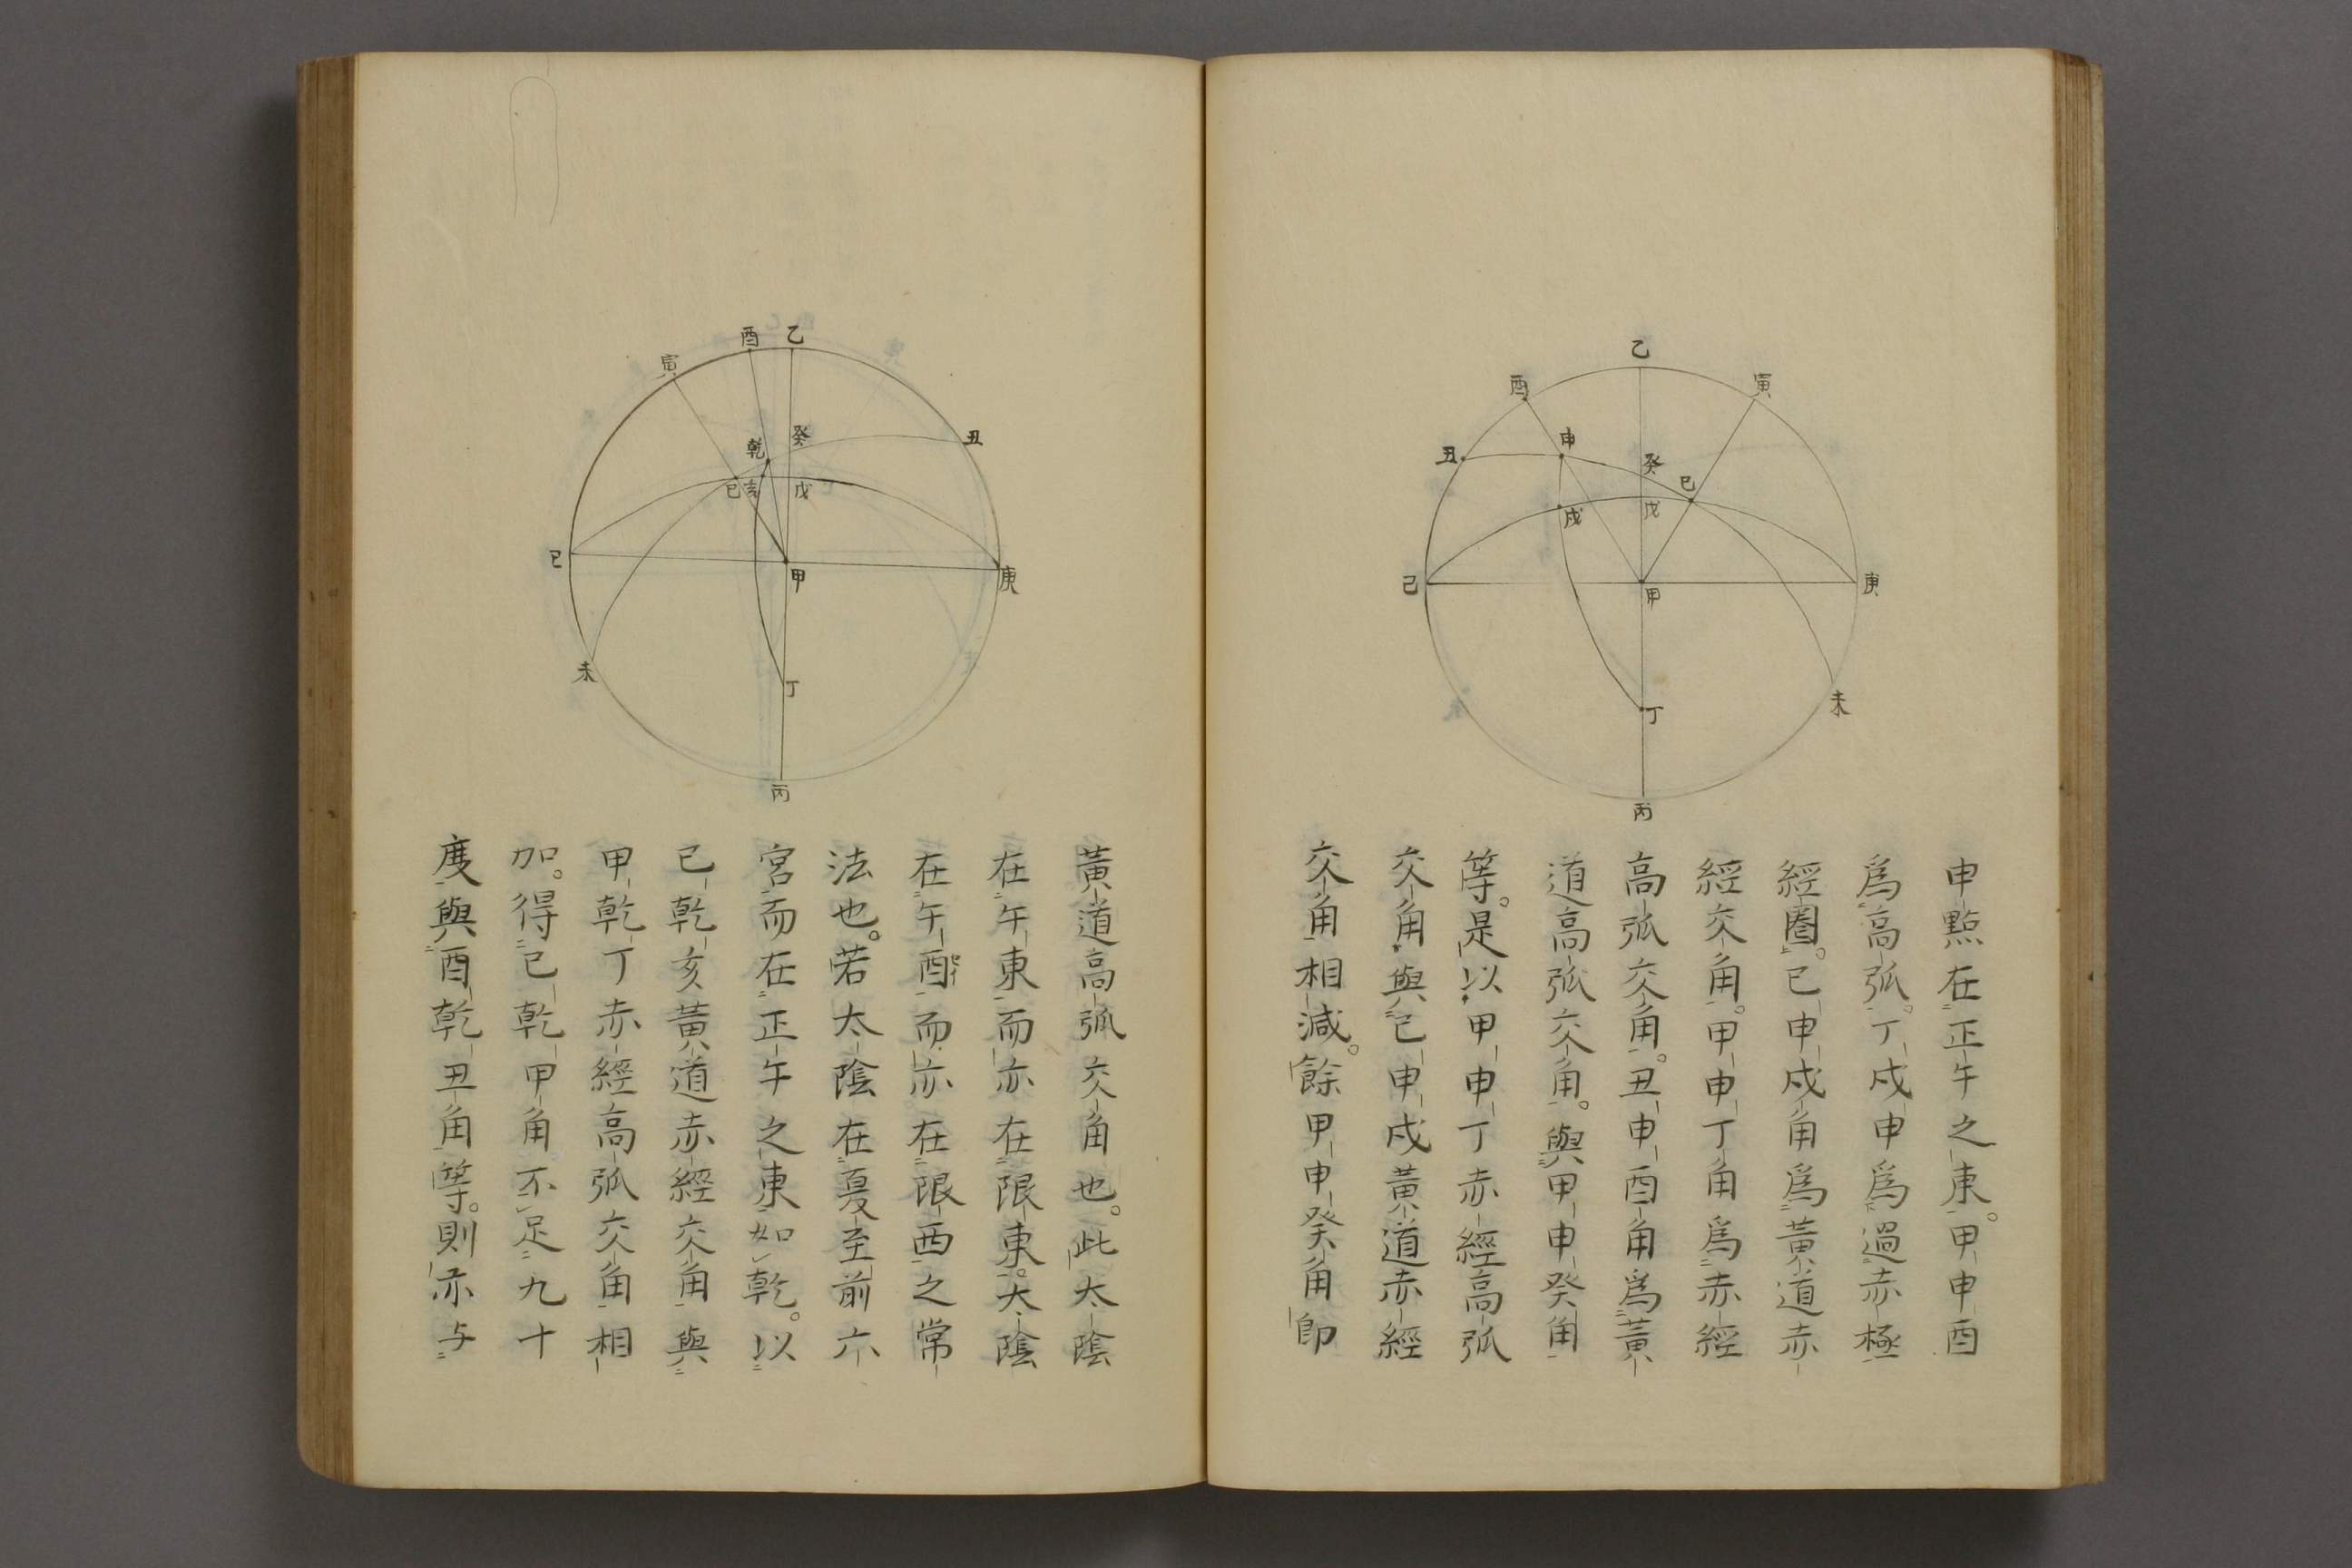 乙
寅
酉
申
丑
癸
巳
戌
戊
己
甲
庚
未
丁
丙
申點在正午之東。甲申酉
爲高弧。丁戌申爲過赤極
經圈。巳申戌角爲黃道赤
經交角。甲申丁角爲赤經
高弧交角。丑申酉角爲黃
道高弧交角。與甲申癸角
等。是以甲申丁赤經高弧
交角、與巳申戌黃道赤經
交角相減。餘甲申癸角即
乙
酉
寅
癸
乾
丑
巳
亥
戊
己
甲
庚
未
丁
丙
黃道高弧交角也。此太陰
在午東而亦在限東。太陰
在午酉而亦在限西之常
法也。若太陰在夏至前六
宮而在正午之東如乾。以
巳乾亥黃道赤經交角與
甲乾丁赤經高弧交角相
加。得巳乾甲角不足九十
度與酉乾丑角等。則亦与